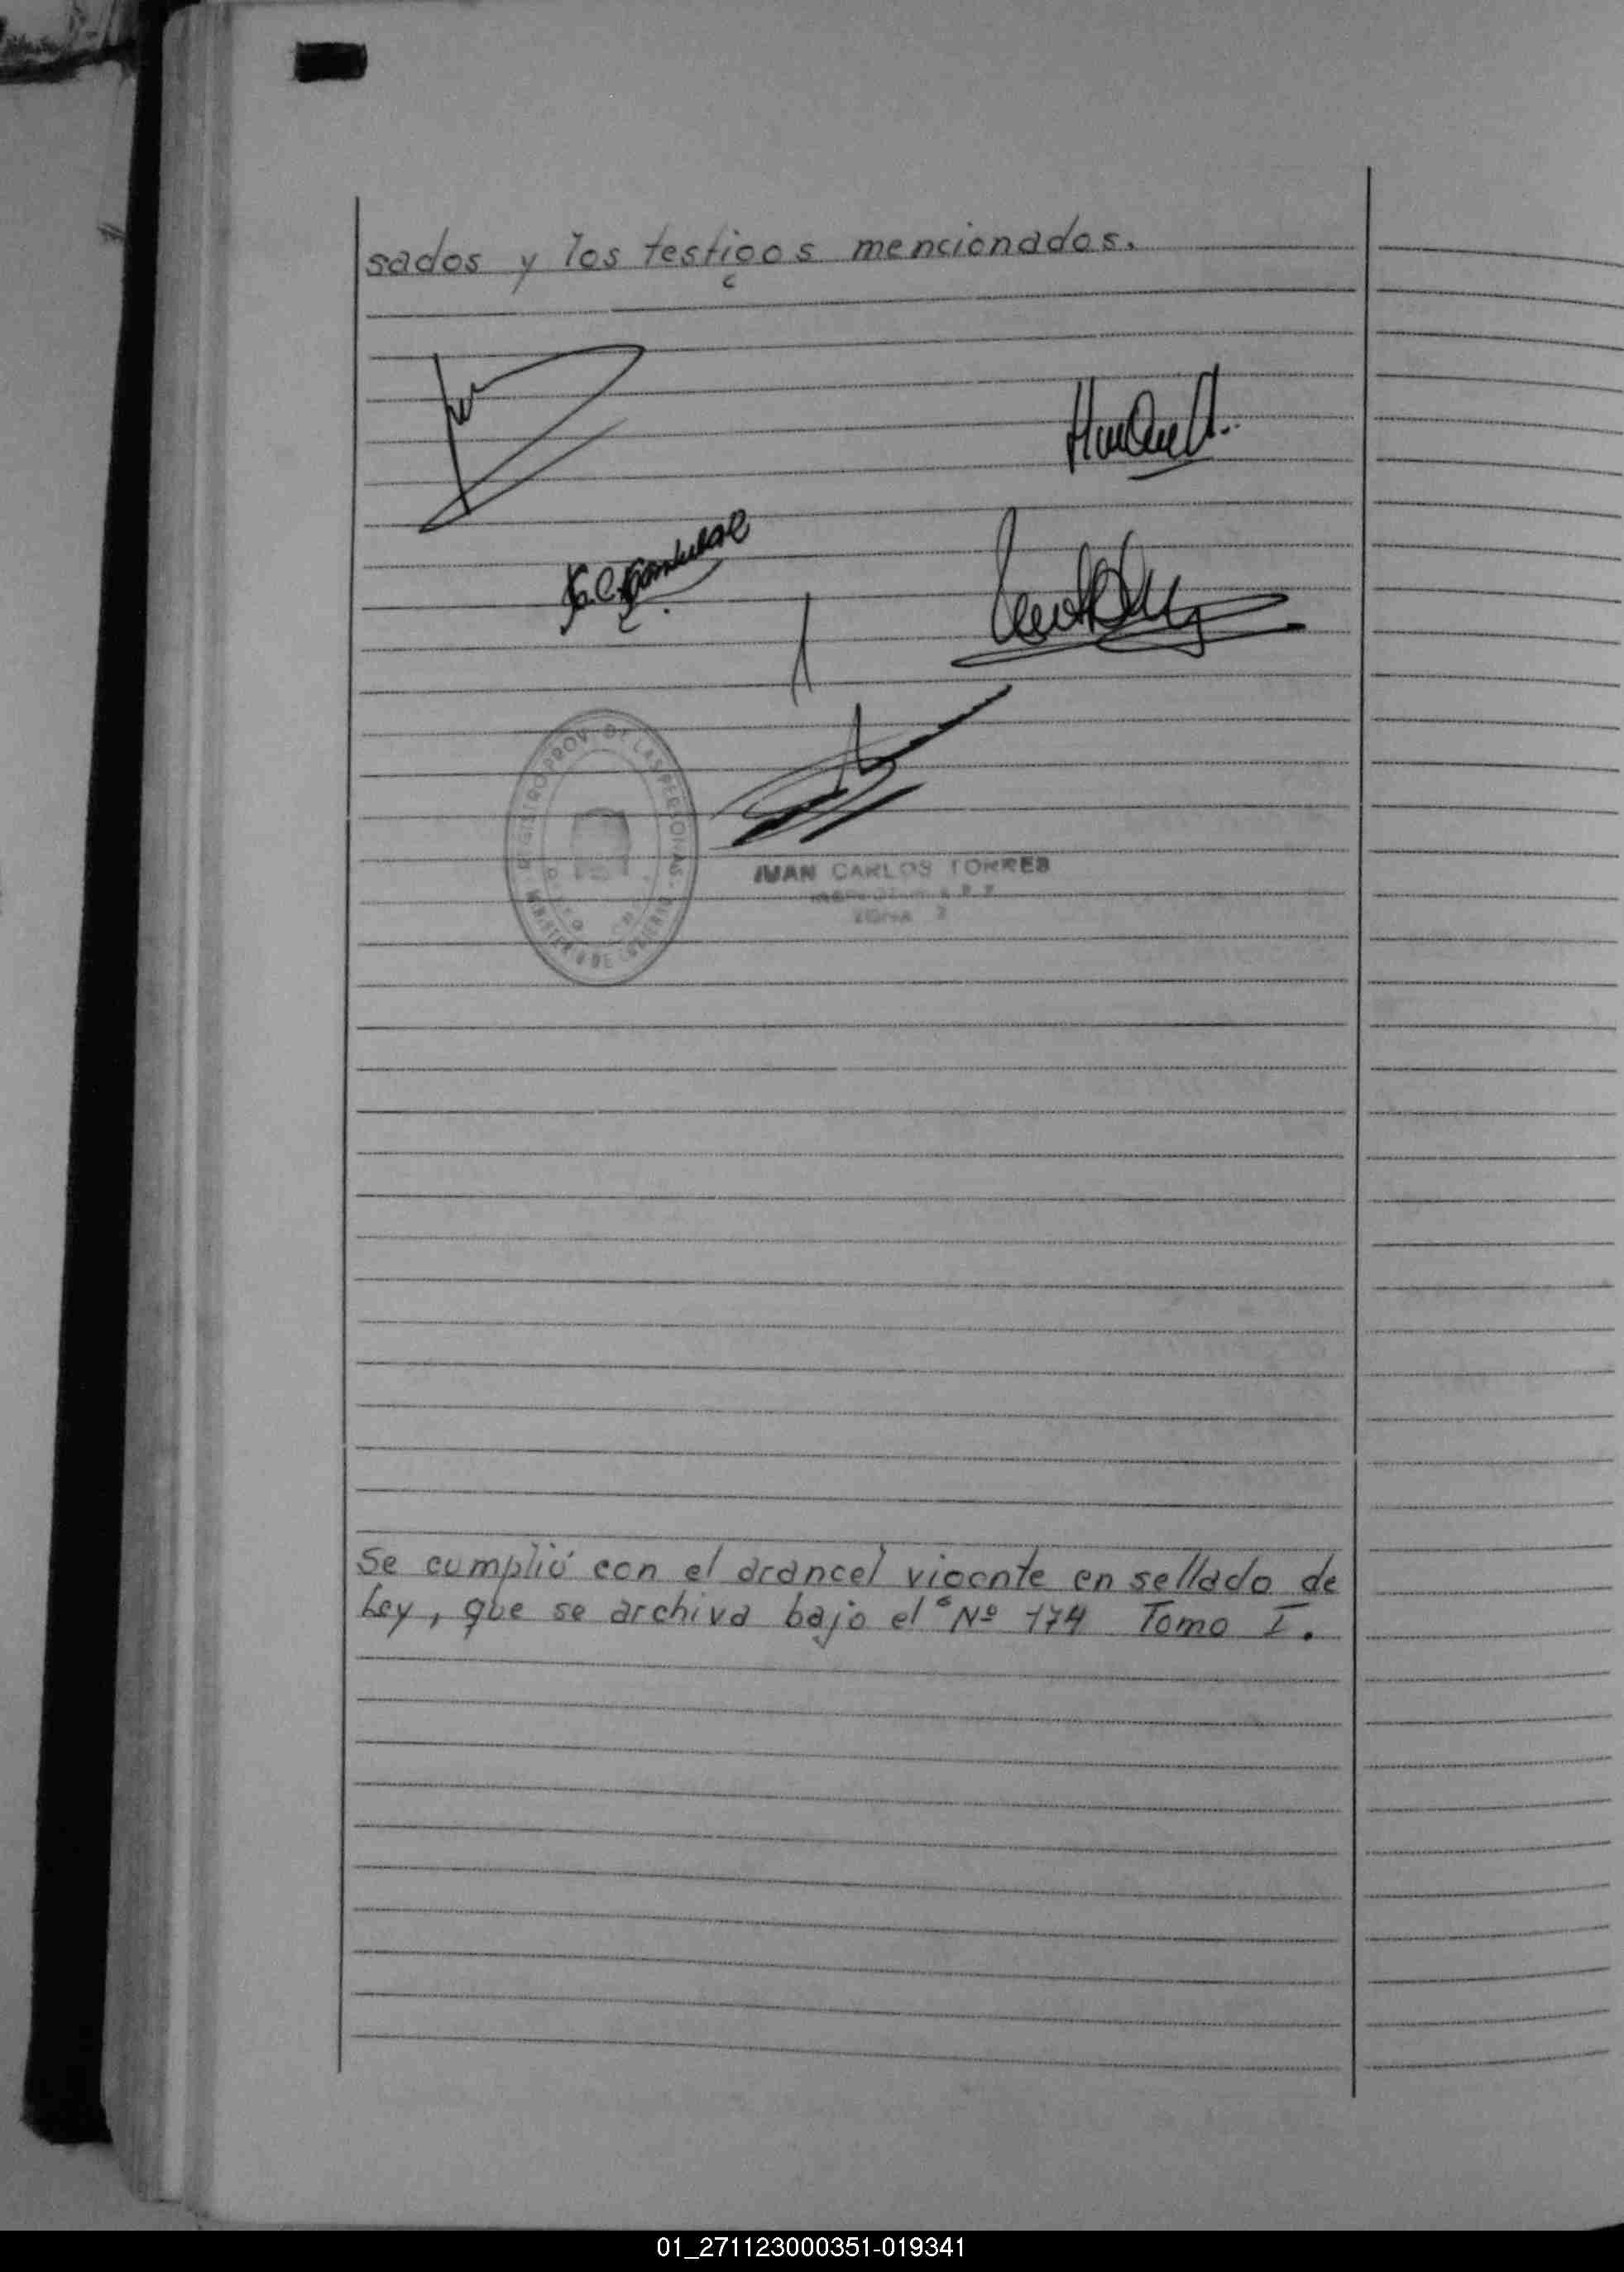 sados y los testigos mencionados.
REGISTRO PROV. DE LAS PERSONAS
MINISTERIO DE GOBIERNO
JUAN CARLOS TORRES
ZONA 3
Se cumplió con el arancel vigente en sellado de
Ley, que se archiva bajo el Nº 174 Tomo I.
01_271123000351-019341